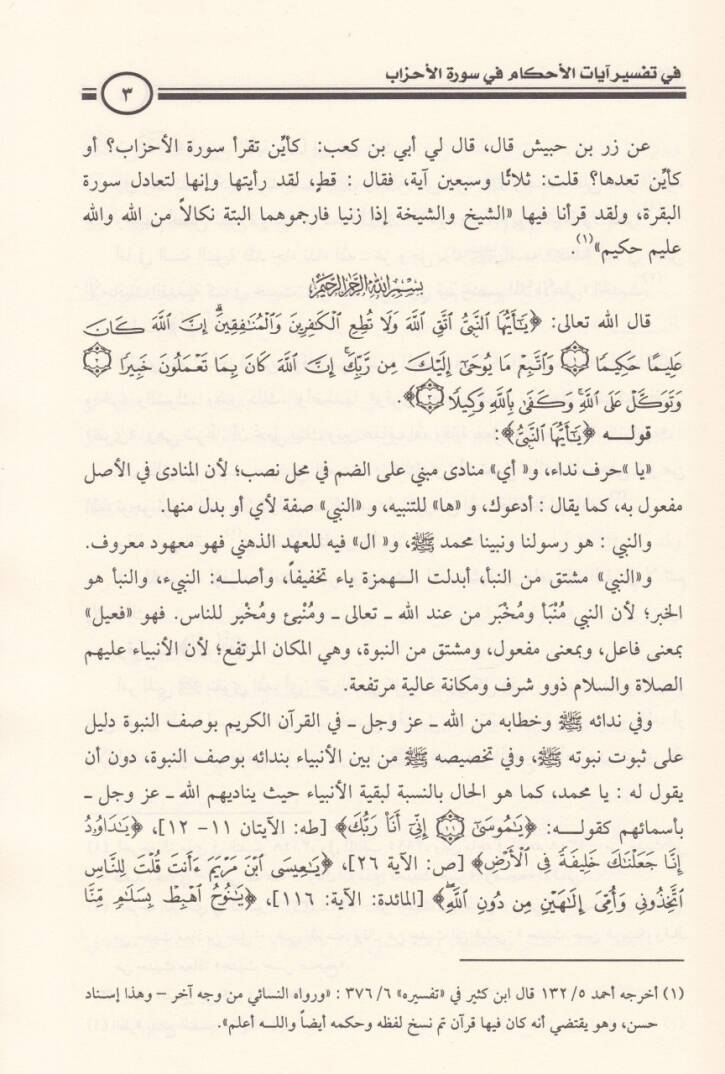 في تفسير آيات الأحكام في سورة الأحزاب
٣
عن زر بن حبيش قال، قال لي أبي بن كعب: كأيِّن تقرأ سورة الأحزاب؟ أو
كأيِّن تعدها؟ قلت: ثلاثًا وسبعين آية، فقال : قطِ، لقد رأيتها وإنها لتعادل سورة
البقرة، ولقد قرأنا فيها «الشيخ والشيخة إذا زنيا فارجموهما البتة نكالاً من الله والله
عليم حكيم»(١).
بِسْمِ اللَّهِ الرَّحْمَنِ الرَّحِيمِ
قال الله تعالى: ﴿يَٰٓأَيُّهَا ٱلنَّبِيُّ ٱتَّقِ ٱللَّهَ وَلَا تُطِعِ ٱلْكَٰفِرِينَ وَٱلْمُنَٰفِقِينَۗ إِنَّ ٱللَّهَ كَانَ
عَلِيمًا حَكِيمًا ۝١ وَٱتَّبِعْ مَا يُوحَىٰٓ إِلَيْكَ مِن رَّبِّكَۚ إِنَّ ٱللَّهَ كَانَ بِمَا تَعْمَلُونَ خَبِيرًا ۝٢
وَتَوَكَّلْ عَلَى ٱللَّهِۚ وَكَفَىٰ بِٱللَّهِ وَكِيلًا ۝٣﴾.
قولــه ﴿يَٰٓأَيُّهَا ٱلنَّبِيُّ﴾:
«يا» حرف نداء، و« أي» منادى مبني على الضم في محل نصب؛ لأن المنادى في الأصل
مفعول به، كما يقال : أدعوك، و «ها» للتنبيه، و «النبي» صفة لأي أو بدل منها.
والنبي : هو رسولنا ونبينا محمد ﷺ، و« ال» فيه للعهد الذهني فهو معهود معروف.
و«النبي» مشتق من النبأ، أبدلت الـهمزة ياء تخفيفاً، وأصلـه: النبيء، والنبأ هو
الخبر؛ لأن النبي مُنْبَأ ومُخْبَر من عند الله ـ تعالى ـ ومُنْبئ ومُخْبر للناس. فهو «فعيل»
بمعنى فاعل، وبمعنى مفعول، ومشتق من النبوة، وهي المكان المرتفع؛ لأن الأنبياء عليهم
الصلاة والسلام ذوو شرف ومكانة عالية مرتفعة.
وفي ندائه ﷺ وخطابه من الله ـ عز وجل ـ في القرآن الكريم بوصف النبوة دليل
على ثبوت نبوته ﷺ، وفي تخصيصه ﷺ من بين الأنبياء بندائه بوصف النبوة، دون أن
يقول له : يا محمد، كما هو الحال بالنسبة لبقية الأنبياء حيث يناديهم الله ـ عز وجل ـ
بأسمائهم كقولـه: ﴿يَٰمُوسَىٰٓ ۝١١ إِنِّيٓ أَنَا۠ رَبُّكَ﴾ [طه: الآيتان ١١- ١٢]، ﴿يَٰدَاوُۥدُ
إِنَّا جَعَلْنَٰكَ خَلِيفَةً فِي ٱلْأَرْضِ﴾ [ص: الآية ٢٦]، ﴿يَٰعِيسَى ٱبْنَ مَرْيَمَ ءَأَنتَ قُلْتَ لِلنَّاسِ
ٱتَّخِذُونِي وَأُمِّيَ إِلَٰهَيْنِ مِن دُونِ ٱللَّهِۖ﴾ [المائدة: الآية: ١١٦]، ﴿يَٰنُوحُ ٱهْبِطْ بِسَلَٰمٍ مِّنَّا
(١) أخرجه أحمد ٥/ ١٣٢ قال ابن كثير في «تفسيره» ٦/ ٣٧٦ : «ورواه النسائي من وجه آخر – وهذا إسناد
حسن، وهو يقتضي أنه كان فيها قرآن تم نسخ لفظه وحكمه أيضاً واللـه أعلم».